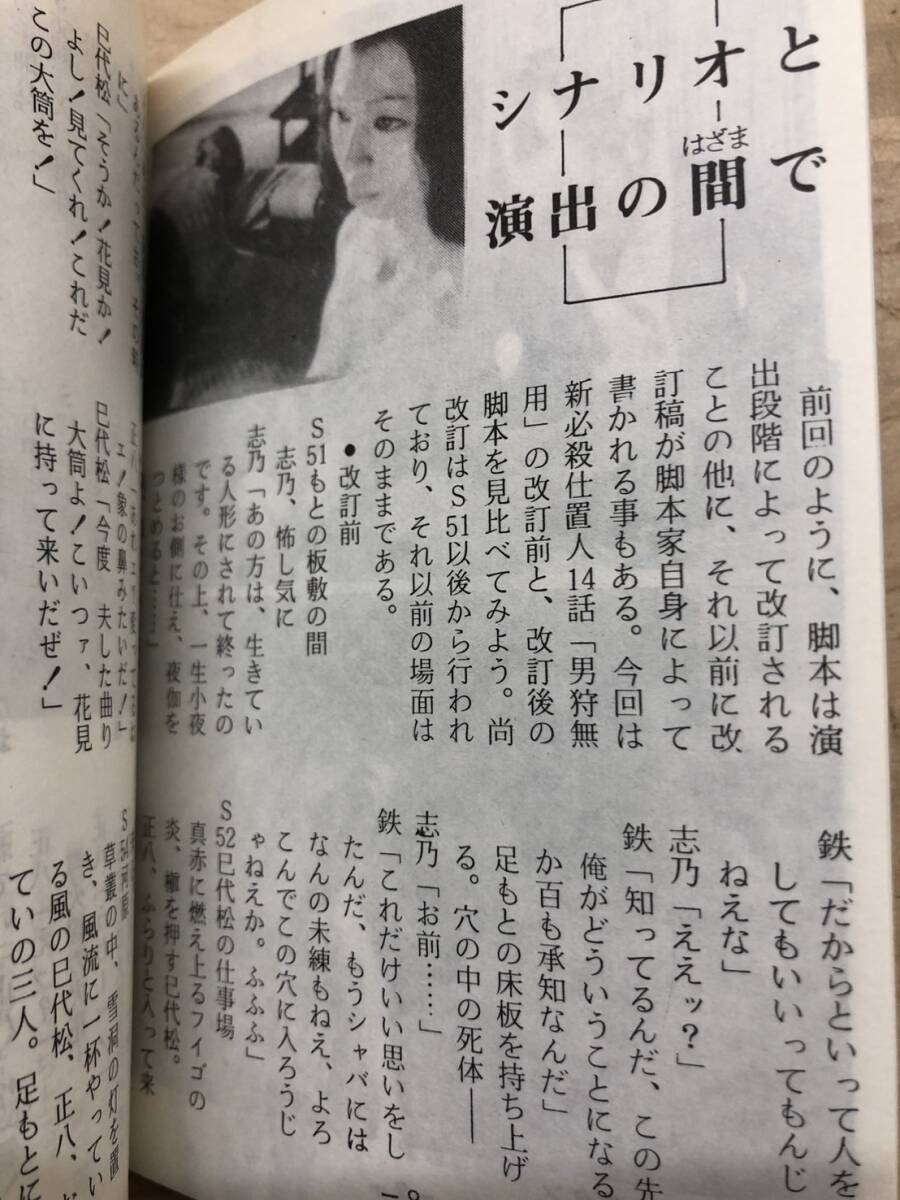 シナリオと
演出の間で
はざま
前回のように、脚本は演
出段階によって改訂される
ことの他に、それ以前に改
訂稿が脚本家自身によって
書かれる事もある。今回は
新必殺仕置人14話「男狩無
用」の改訂前と、改訂後の
脚本を見比べてみよう。尚
改訂はS51以後から行われ
ており、それ以前の場面は
そのままである。
●改訂前
S51もとの板敷の間
志乃、怖し気に
志乃「あの方は、生きてい
る人形にされて終ったの
です。その上、一生小夜
様のお側に仕え、夜伽を
つとめると……」
鉄「だからといって人を
してもいいってもんじ
ねえな」
志乃「ええッ?」
鉄「知ってるんだ、この先
俺がどういうことになる
か百も承知なんだ」
足もとの床板を持ち上げ
る。穴の中の死体――
志乃「お前……」
鉄「これだけいい思いをし
たんだ、もうシャバには
なんの未練もねえ、よろ
こんでこの穴に入ろうじ
ゃねえか。ふふふ」
S52巳代松の仕事場
真赤に燃え上るフイゴの
炎、樶を押す巳代松。
正八、ふらりと入って来
に」
巳代松「そうか!花見か!
よし!見てくれ!これだ
この大筒を!」
エ!象の鼻みたいだ!」
巳代松「今度 夫した曲り
大筒よ!こいつァ、花見
に持って来いだぜ!
S54河原
草叢の中、雪洞の灯を置
き、風流に一杯やってい
る風の巳代松、正八、
ていの三人。足もとに